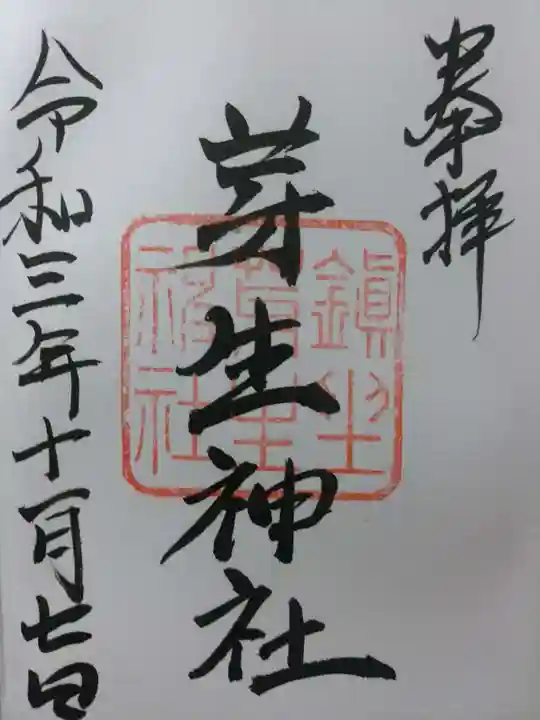 奉拝
芽生神社
令和三年十一月七日
鎮
芽生
神社